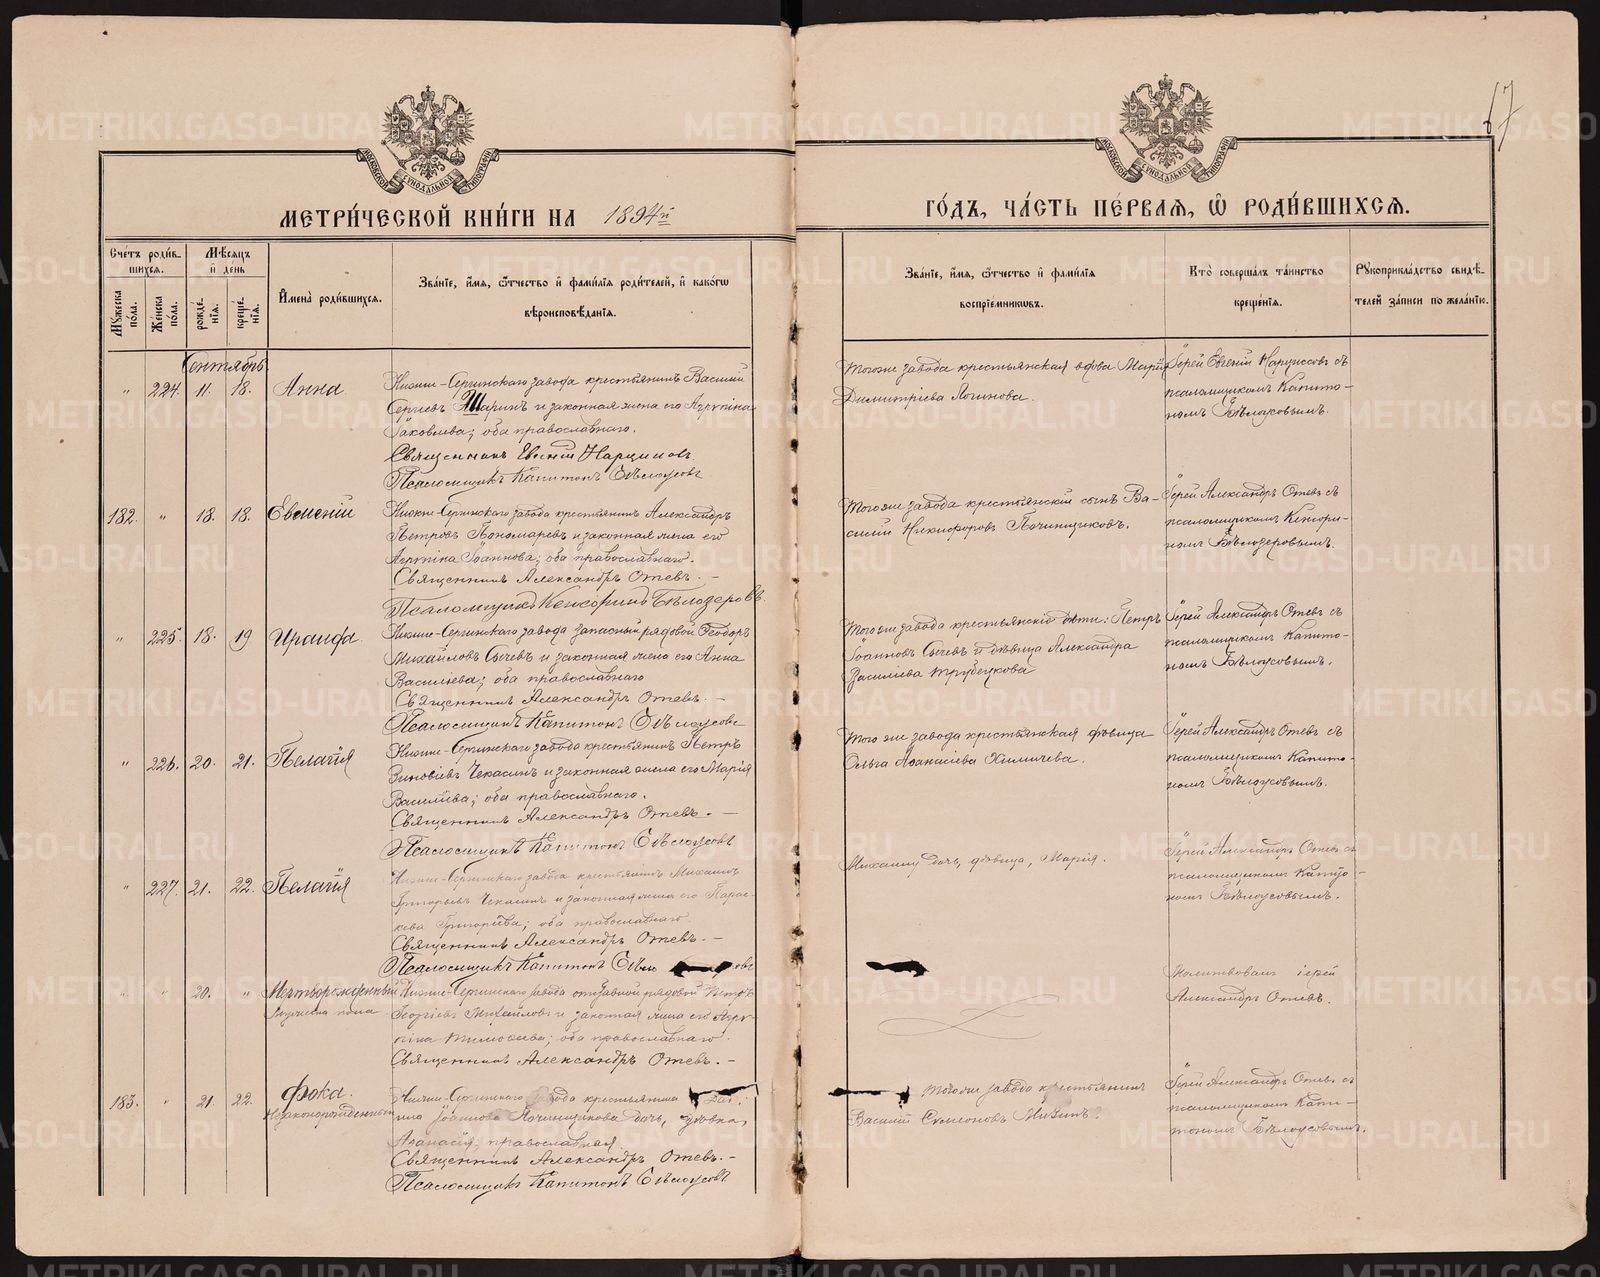 67
МОСКОВСКОЙ СѴНОДАЛЬНОЙ ТИПОГРАФІИ
МОСКОВСКОЙ СѴНОДАЛЬНОЙ ТИПОГРАФІИ
МЕТРИ́ЧЕСКОЙ КНИ́ГИ НА 1894й
ГО́ДЪ, ЧА́СТЬ ПЕ́РВАЯ, Ѡ РОДИ́ВШИХСЯ.
Счетъ родив-
шихся.
Мѣсяцъ
и день
Мужеска пола.
Женска пола.
рожде-
нія.
креще-
нія.
Имена родившихся.
Званіе, имя, отчество и фамилія родителей, и какогѡ
вѣроисповѣданія.
Званіе, имя, отчество и фамилія
воспріемникѡвъ.
Кто совершалъ таинство
крещенія.
Рукоприкладство свидѣ-
телей записи по желанію.
Сентябрь
" 224. 11. 18. Анна
Нижне-Сергинскаго завода крестьянинъ Василий
Сергѣевъ Шаринъ и законная жена его Агрипина
Іаковлева; оба православнаго.
Священникъ Евгеній Нарциссовъ
Псаломщикъ Капитонъ Бѣлоусовъ
Тогоже завода крестьянская вдова Марія
Димитріева Логинова.
Іерей Евгеній Нарциссовъ съ
псаломщикомъ Капито-
номъ Бѣлоусовымъ.
182. " 18. 18. Евменій
Нижне-Сергинскаго завода крестьянинъ Александръ
Петровъ Пономаревъ и законная жена его
Агрипина Іоаннова; оба православнаго.
Священникъ Александръ Отевъ. –
Псаломщикъ Кенсоринъ Бѣлозеровъ.
Тогоже завода крестьянскій сынъ Ва-
силій Никифоровъ Починщиковъ.
Іерей Александръ Отевъ съ
псаломщикомъ Кенсори-
номъ Бѣлозеровымъ.
" 225. 18. 19 Ираида
Нижне-Сергинскаго завода запасный рядовой Ѳеодоръ
Михайловъ Сычевъ и законная жена его Анна
Васильева; оба православнаго
Священникъ Александръ Отевъ. –
Псаломщикъ Капитонъ Бѣлоусовъ
Тогоже завода крестьянскіе дѣти: Петръ
Іоанновъ Сычевъ и дѣвица Александра
Васильева Трубецкова
Іерей Александръ Отевъ съ
псаломщикомъ Капито-
номъ Бѣлоусовымъ.
" 226. 20. 21. Пелагія
Нижне-Сергинскаго завода крестьянинъ Петръ
Зиновіевъ Чекасинъ и законная жена его Марія
Васильева; оба православнаго.
Священникъ Александръ Отевъ. –
Псаломщикъ Капитонъ Бѣлоусовъ
Того же завода крестьянская дѣвица
Ольга Аѳанасіева
Іерей Александръ Отевъ съ
псаломщикомъ Капито-
номъ Бѣлоусовымъ.
" 227. 21. 22. Пелагія
Нижне-Сергинскаго завода крестьянинъ Михаилъ
Григорьевъ Чекасинъ и законная жена его Парас-
кева Григоріева; оба православнаго.
Священникъ Александръ Отевъ. –
Псаломщикъ Капитонъ
Михаилу дочь, дѣвица, Марія.
Іерей Александръ Отевъ съ
псаломщикомъ Капито-
номъ Бѣлоусовымъ.
" " 20. " Мертворожденный
мужеска пола
Нижне-Сергинскаго завода отставной рядовой Петръ
Георгіевъ Михайловъ и законная жена его Агри-
пина Тимоѳеева; оба православнаго.
Священникъ Александръ Отевъ. –
Молитвовалъ іерей
Александръ Отевъ.
183. " 21. 22. Фока.
Незаконорожденный
Нижне-Сергинскаго завода крестьянина
Іоаннова Починщикова дочь, дѣвка,
Аѳанасія; православная.
Священникъ Александръ Отевъ. –
Псаломщикъ Капитонъ Бѣлоусовъ
Тогоже завода крестьянинъ
Василій Симеоновъ Мизинъ.
Іерей Александръ Отевъ съ
псаломщикомъ Капи-
тономъ Бѣлоусовымъ.
METRIKI.GASO-URAL.RU